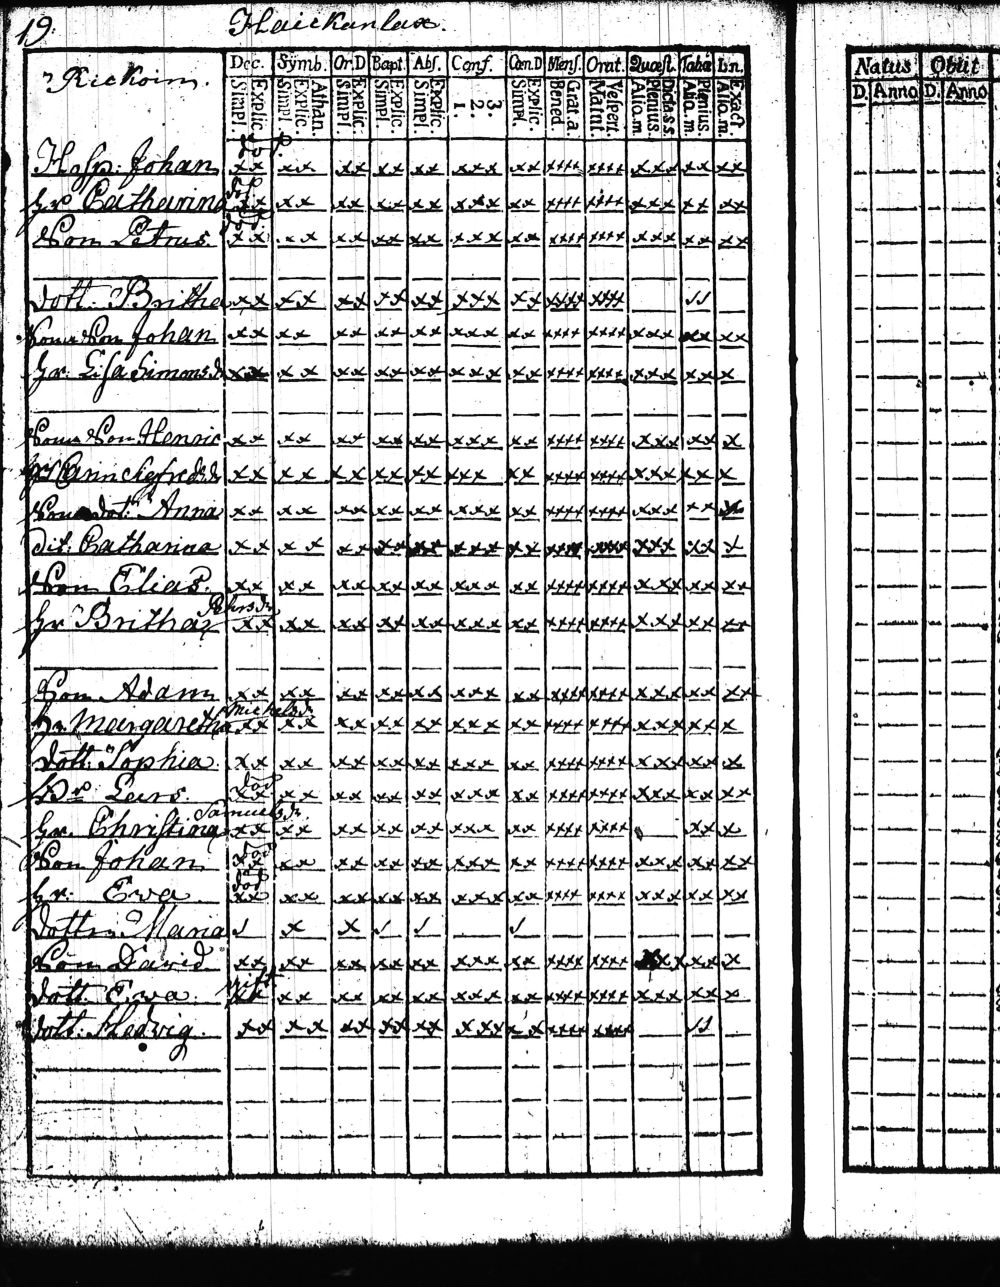 19.
Haickanlax.
Kickoin.
Dec. Symb. Or.D Bapt. Abs. Conf. Cœn.D Mens. Orat. Quæst. Taba Ln.
Explic. Simpl. Athan. Explic. Simpl. Explic. Simpl. Explic. Simpl. Explic. Simpl. 3. 2. 1. Explic. Simpl. Grat.a Bened. Vespert. Matut. Dicta s.s. Plenius. Alio.m Plenius. Alio.m. Exact. Alio.m.
Natus Obiit
D. Anno D. Anno
död.
Hosp: Johan xx xx xx xx xx xxx xx xxxx xxxx xxx xx xx
död
Hr Catharina xx xx xx xx xx xxx xx xxxx xxxx xxx xx xx
död.
Son Petrus. xx xx xx xx xx xxx xx xxxx xxxx xxx xx xx
dott: Britha xx xx xx xx xx xxx xx xxxx xxxx
Sons Son Johan xx xx xx xx xx xxx xx xxxx xxxx xxx xx xx
Hr. Lisa Simonsd xx xx xx xx xx xxx xx xxxx xxxx xxx xx x
Sons Son Henric xx xx xx xx xx xxx xx xxxx xxxx xxx xx x
xx xx xx xx xx xxx xx xxxx xxxx xxx xx x
Sons dot: Anna xx xx xx xx xx xxx xx xxxx xxxx xxx xx x
dit: Catharina xx xx xx xx xx xxx xx xxxx xxxx xxx xx x
Son Elias. xx xx xx xx xx xxx xx xxxx xxxx xxx xx xx
Hr Britha xx xx xx xx xx xxx xx xxxx xxxx xxx xx xx
Son Adam xx xx xx xx xx xxx xx xxxx xxxx xxx xx xx
Michelsdr
Hr. Margaretha xx xx xx xx xx xxx xx xxxx xxxx xxx xx x
dott: Sophia. xx xx xx xx xx xxx xx xxxx xxxx xxx xx x
död
Br. Lars. xx xx xx xx xx xxx xx xxxx xxxx xxx xx xx
Samuelsdr.
Hr. Christina xx xx xx xx xx xxx xx xxxx xxxx xx x
död
Son Johan xx xx xx xx xx xxx xx xxxx xxxx xxx xx xx
död
Hr. Eva xx xx xx xx xx xxx xx xxxx xxxx xxx xx xx
Dotter Maria x x
Son David xx xx xx xx xx xxx xx xxxx xxxx xxx xx x
gift
dott. Eva xx xx xx xx xx xxx xx xxxx xxxx xxx xx x
dott: Hedvig. xx xx xx xx xx xxx xx xxxx xxxx